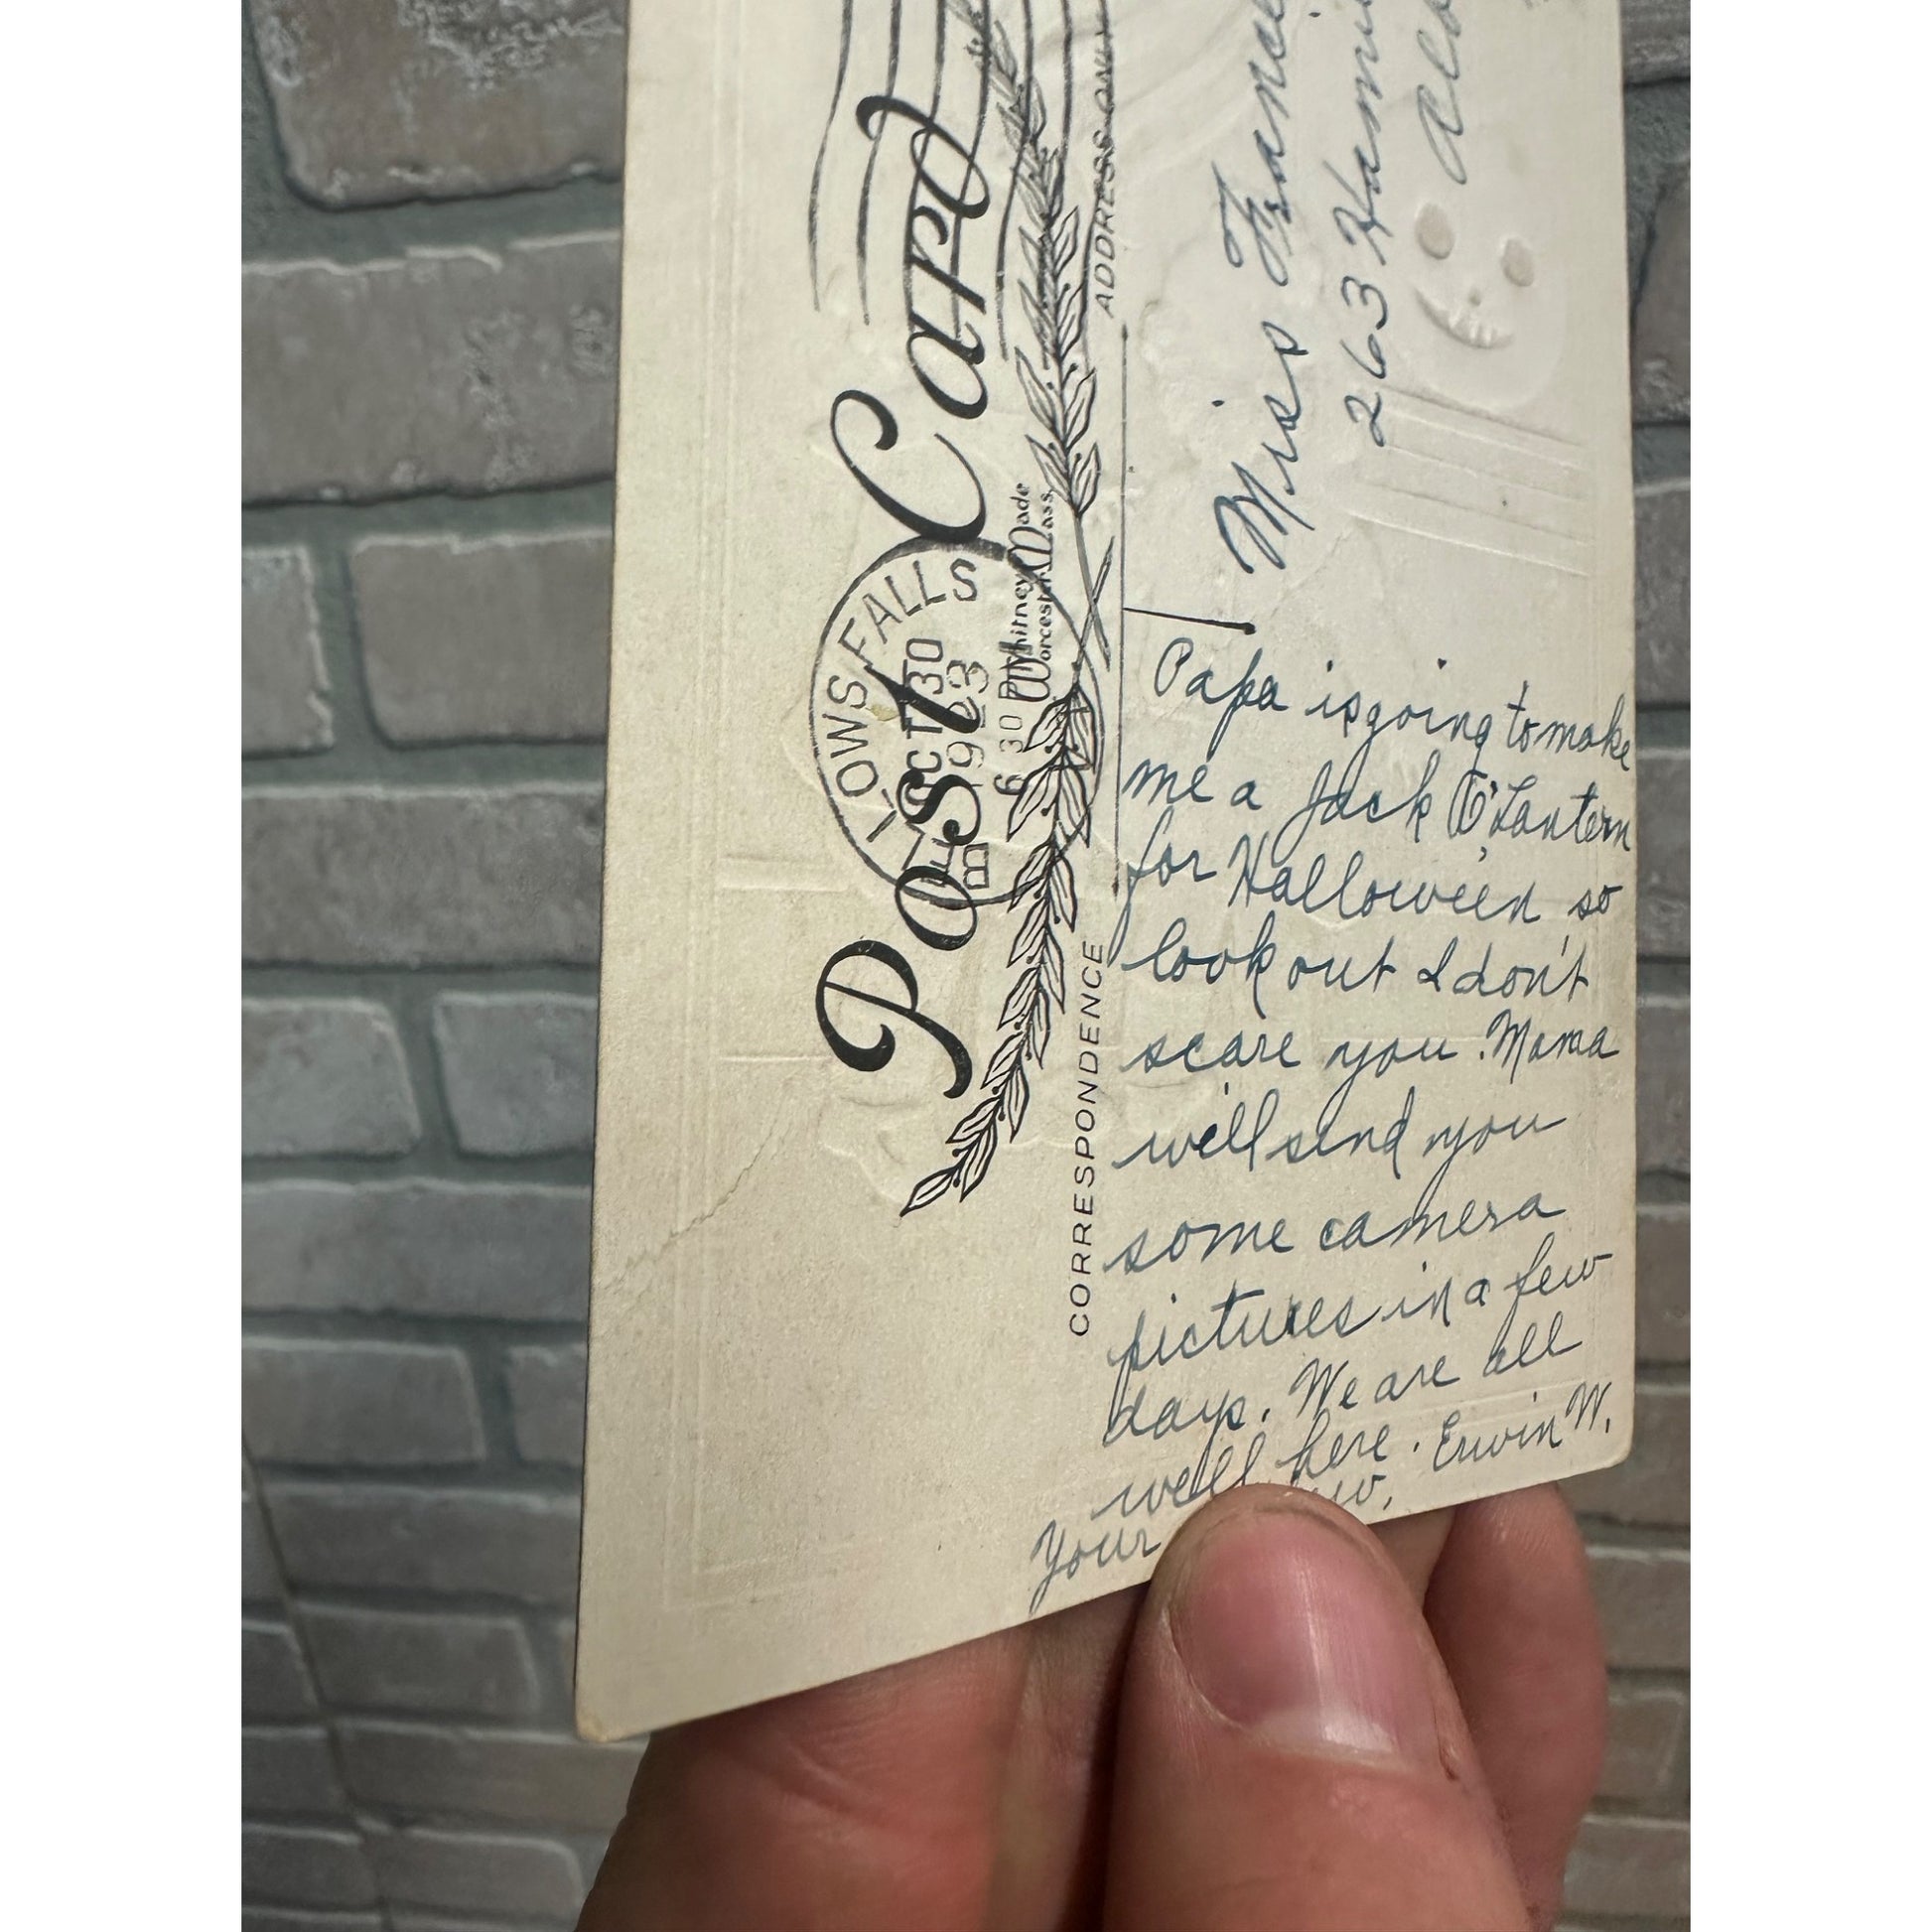 Post Card
BELLOWS FALLS
OCT 30
1923
6 30 P
Whitney Made
Worcester, Mass.
CORRESPONDENCE
ADDRESS ONLY
Papa is going to make
me a Jack O'Lantern
for Hallowe'en, so
look out I don't
scare you. Mama
will send you
some camera
pictures in a few
days. We are all
well here. Erwin W.
Your
Miss
263